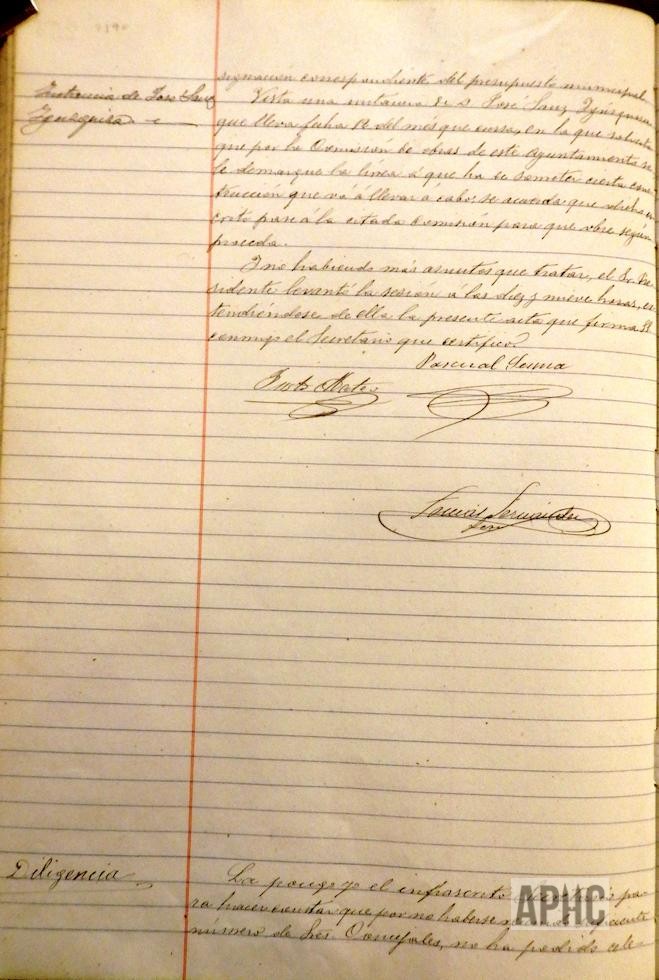 signación correspondiente del presupuesto municipal.
Instancia de José Sanz
Vista una instancia de D. José Sanz
que lleva fecha 12 del mes que cursa, en la que solicita
que por la Comisión de obras de este Ayuntamiento se
le demarque la línea á que ha de someter cierta cons
trucción que vá á llevar á cabo: se acuerda que dicho es
crito pase á la citada Comisión para que obre según
proceda.
Y no habiendo más asuntos que tratar, el Sr. Pre
sidente levantó la sesión á las diez y nueve horas, ex
tendiéndose de ella la presente acta que firma
conmigo el Secretario que certifico.
Pascual
Mateo
Tomás Fernández
Diligencia
La pongo yo el infrascrito Secretario pa
ra hacer constar que por no haberse reunido suficiente
número de Sres. Concejales, no ha podido cele
APHC